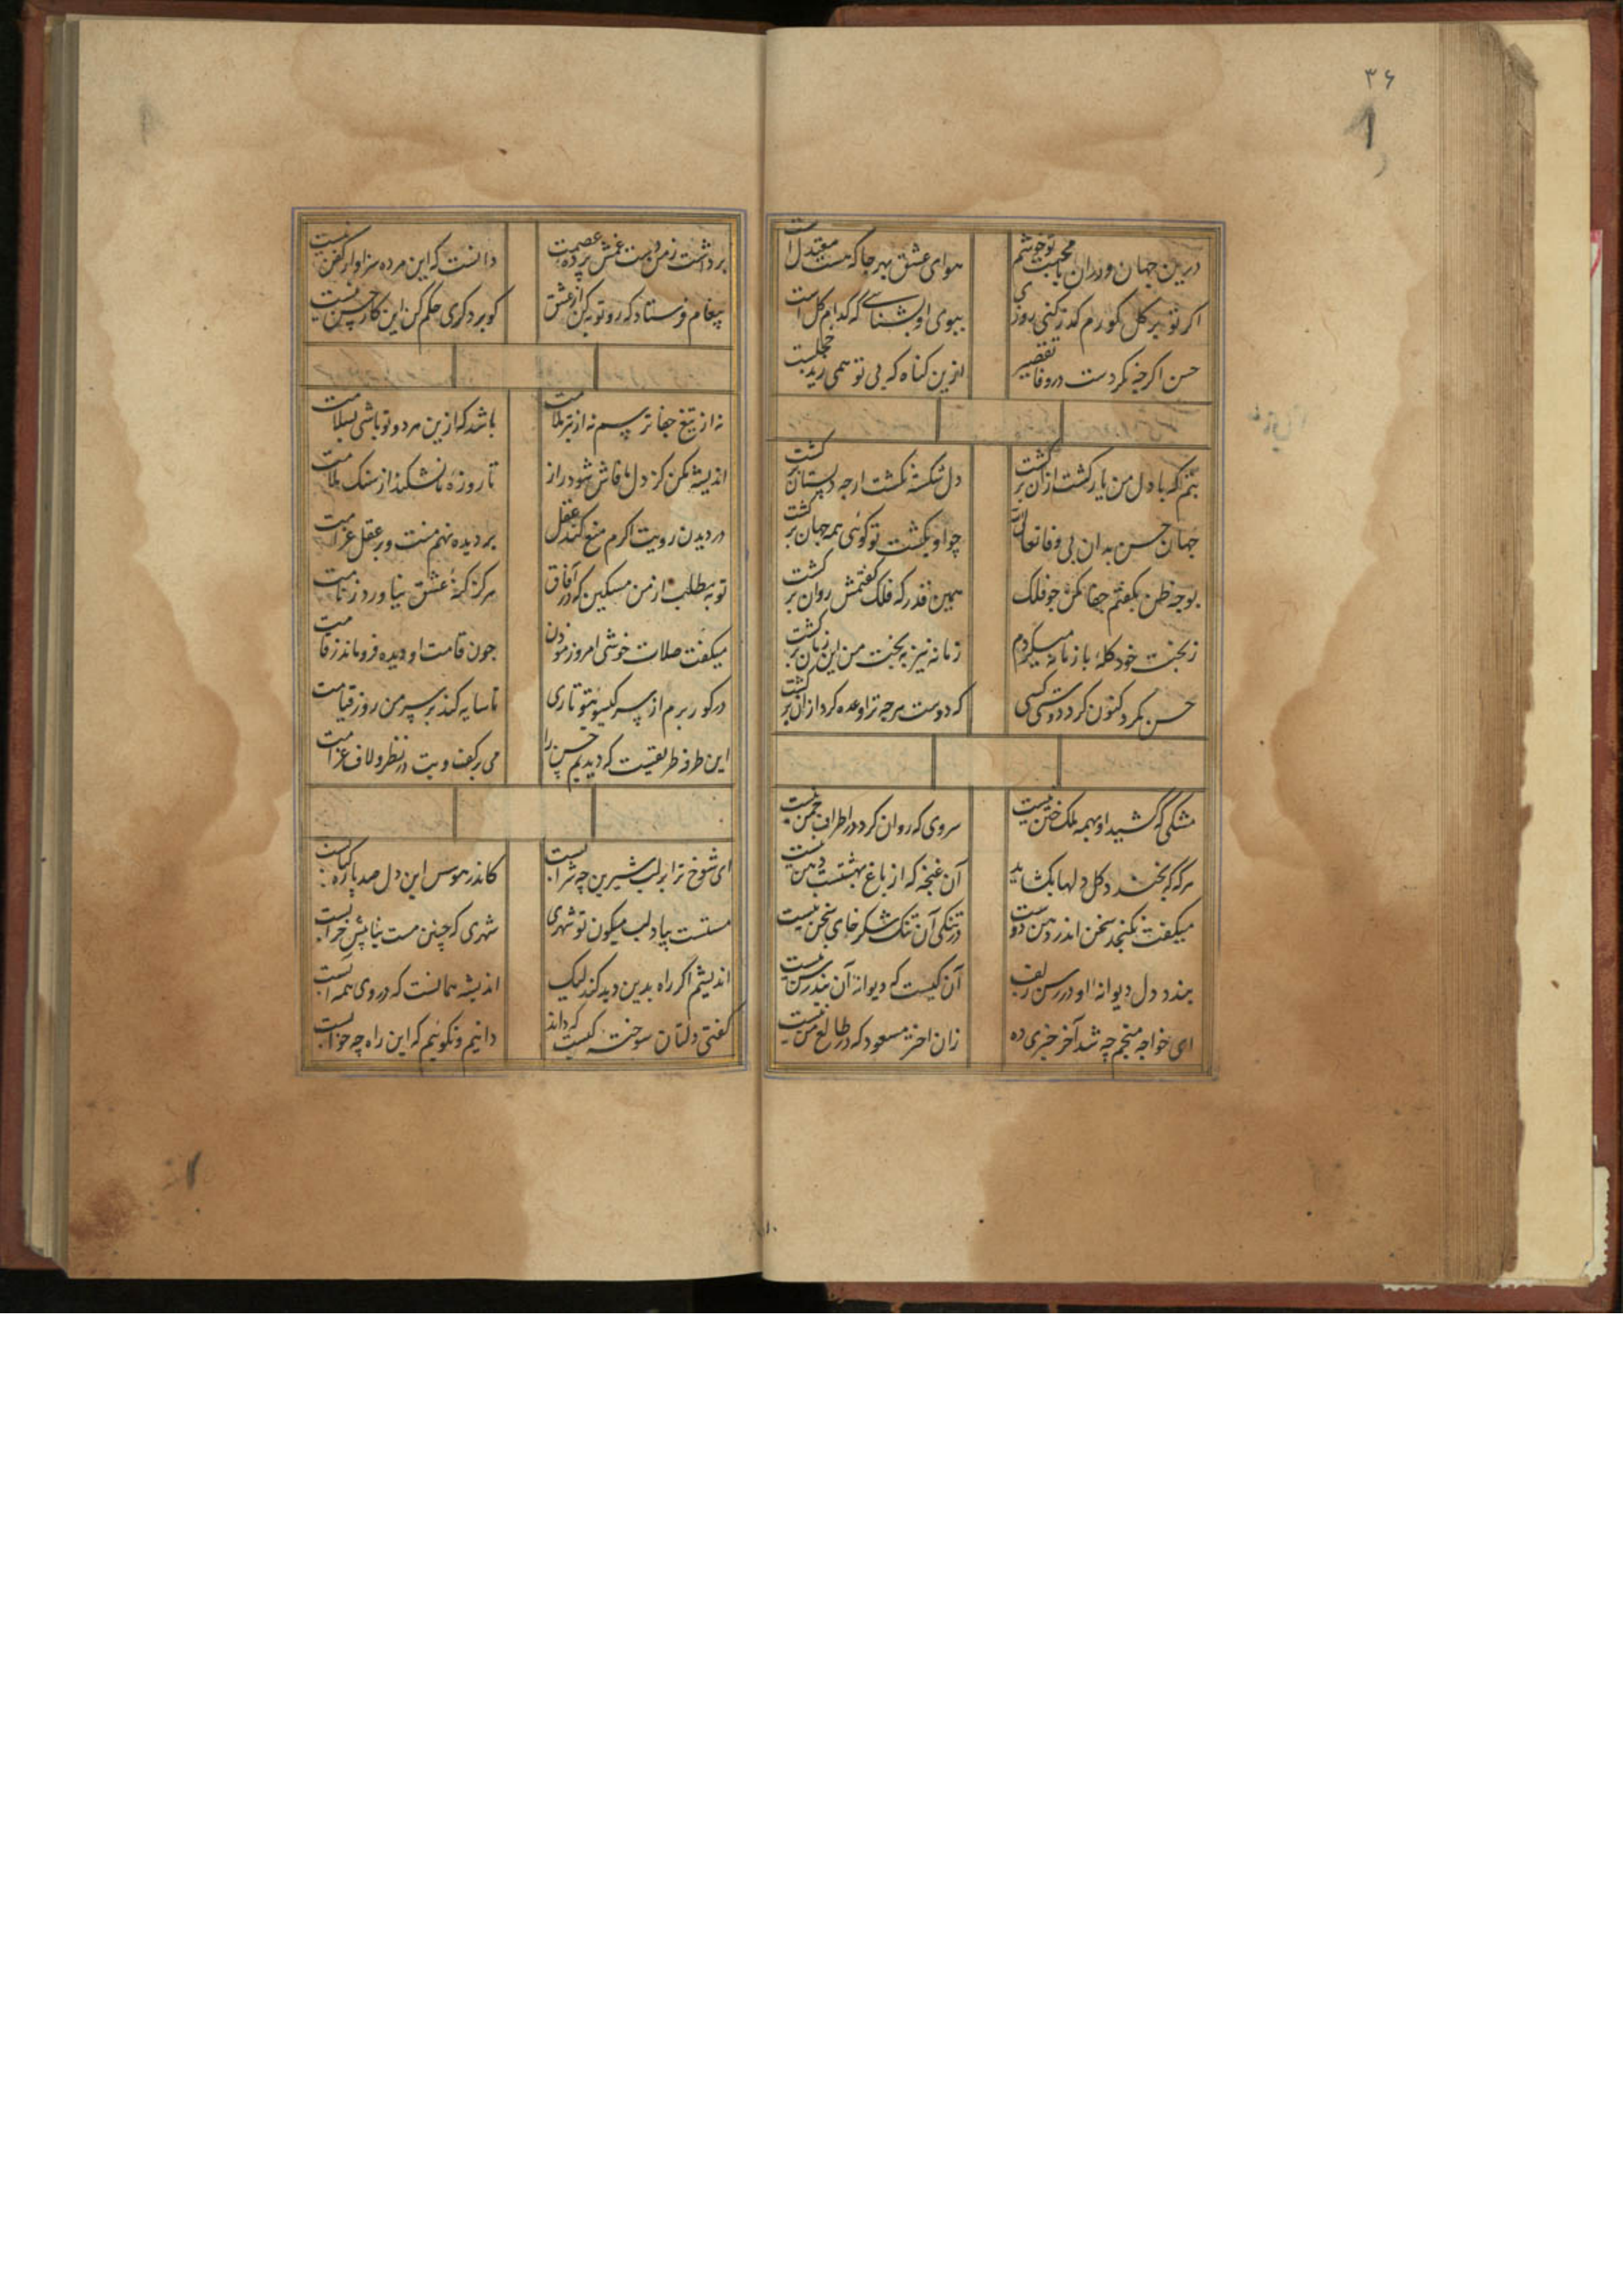 ۳۶
درین جهان و دران با محبت تو خوشم هوای عشق بهر جا که هست معتدل است
اکر تو بر کل کورم کذر کنی روزی ببوی او بشناسی که کدام کل است
حسن اکرچه نکردست در وفا تقصیر ازین کناه که بی تو همی زید خجلست
بتم که با دل من یار کشت ازان برکشت دل شکسته نکشت ارچه دلستان برکشت
جهان حسن بدان بی وفا چو او بکشت تو کوئی همه جهان برکشت
بوجه ظن بکفتم جفا مکن جو فلک همین قدر که فلک کفتمش روان برکشت
ز بخت خود کلهٔ با زمانه میکردم زمانه نیز به بخت من این زمان برکشت
حسن نکرد کنون کرد دوستی کسی که دوست هرچه ترا وعده کرد ازان برکشت
مشکی که کشید او بهمه ملک ختن نیست سروی که روان کرد در اطراف چمن نیست
هرکه که بخندد کل دلها بکشاید آن غنچه که از باغ بهشتست دهن نیست
میکفت نکنجد سخن اندر دهن دوست در تنکی آن تنک شکر جای سخن نیست
بندد دل دیوانه او در رسن زلف آن کیست که دیوانه آن بند رسن نیست
ای خواجه منجم چه شد آخر خبری ده زان اختر مسعود که در طالع من نیست
برداشت ز من دست غمش پرده عصمت دانست که این مرده سزاوار کفن نیست
پیغام فرستاد که رو توبه کن از عشق کو بر دکری حکم کن این کار حسن نیست
نه از تیغ جفا ترسم نه از تیر ملامت باشد که ازین هر دو تو باشی بسلامت
اندیشه مکن کز دل ما فاش شود راز تا روزه ما نشکند از سنک ملامت
در دیدن رویت اکرم منع کند عقل بر دیده نهم منت و بر عقل غرامت
توبه مطلب از من مسکین که در آفاق هرکز کنه عشق نیاورد ندامت
میکفت صلات خوشی امروز مؤذن جون قامت او دیده فرو ماند ز قامت
در کور برم از سر کیسوی تو تاری تا سایه کند بر سر من روز قیامت
این طرفه طریقیست که دیدیم حسن را می بر کف و بت در نظر و لاف غرامت
ای شوخ ترا بر لب شیرین چه شرابست کاندر هوس این دل صد پاره کبابست
مستست بیاد لب میکون تو شهری شهری که چنین مست بباشد خرابست
اندیشم اکر راه بدین دید کند لیک اندیشه همانست که در روی همه آبست
کفتی دلتان سوخته کیست که داند دانیم و نکوئیم که این راه چه خوابست